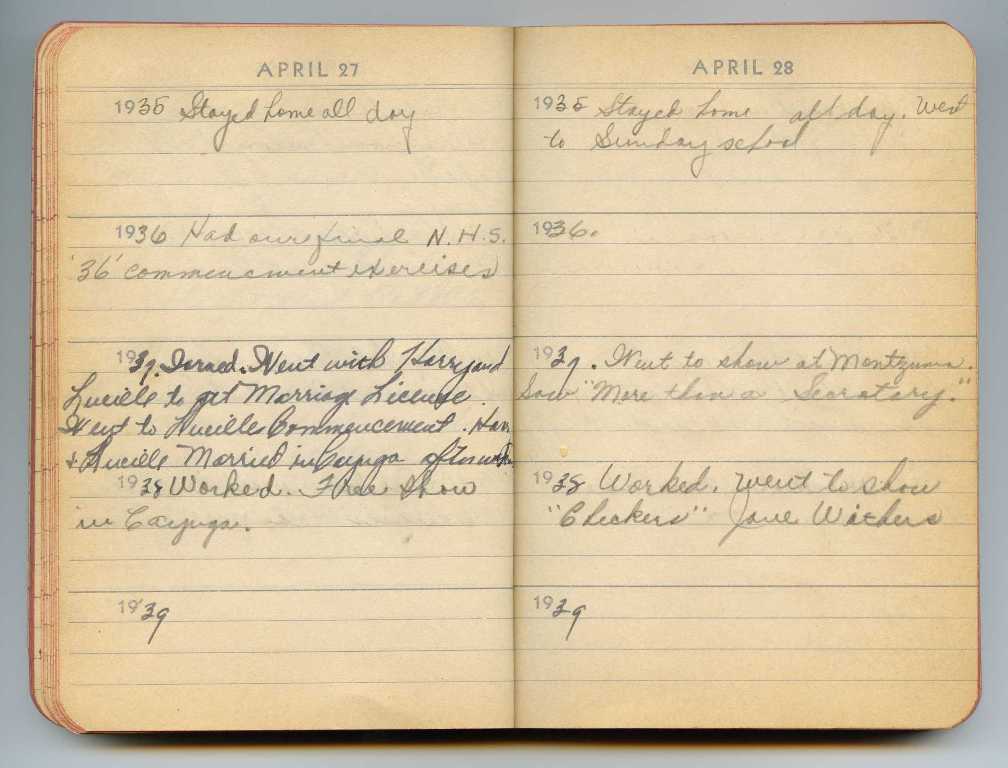 APRIL 27
1935 Stayed home all day
1936 Had our final N.H.S.
'36' commencment exercises
1937. Ironed. Went with Harry and
Lucille to get Marriage License.
Went to Lucille Commencement. Harry
& Lucille Married in Cayuga afterwards
1938 Worked. Free Show
in Cayuga.
1939
APRIL 28
1935 Stayed home all day. Went
to Sunday school
1936.
1937. Went to show at Montzuma.
Saw "More than a Secratary."
1938 Worked. Went to show
"Checkers" Jane Withers
1939